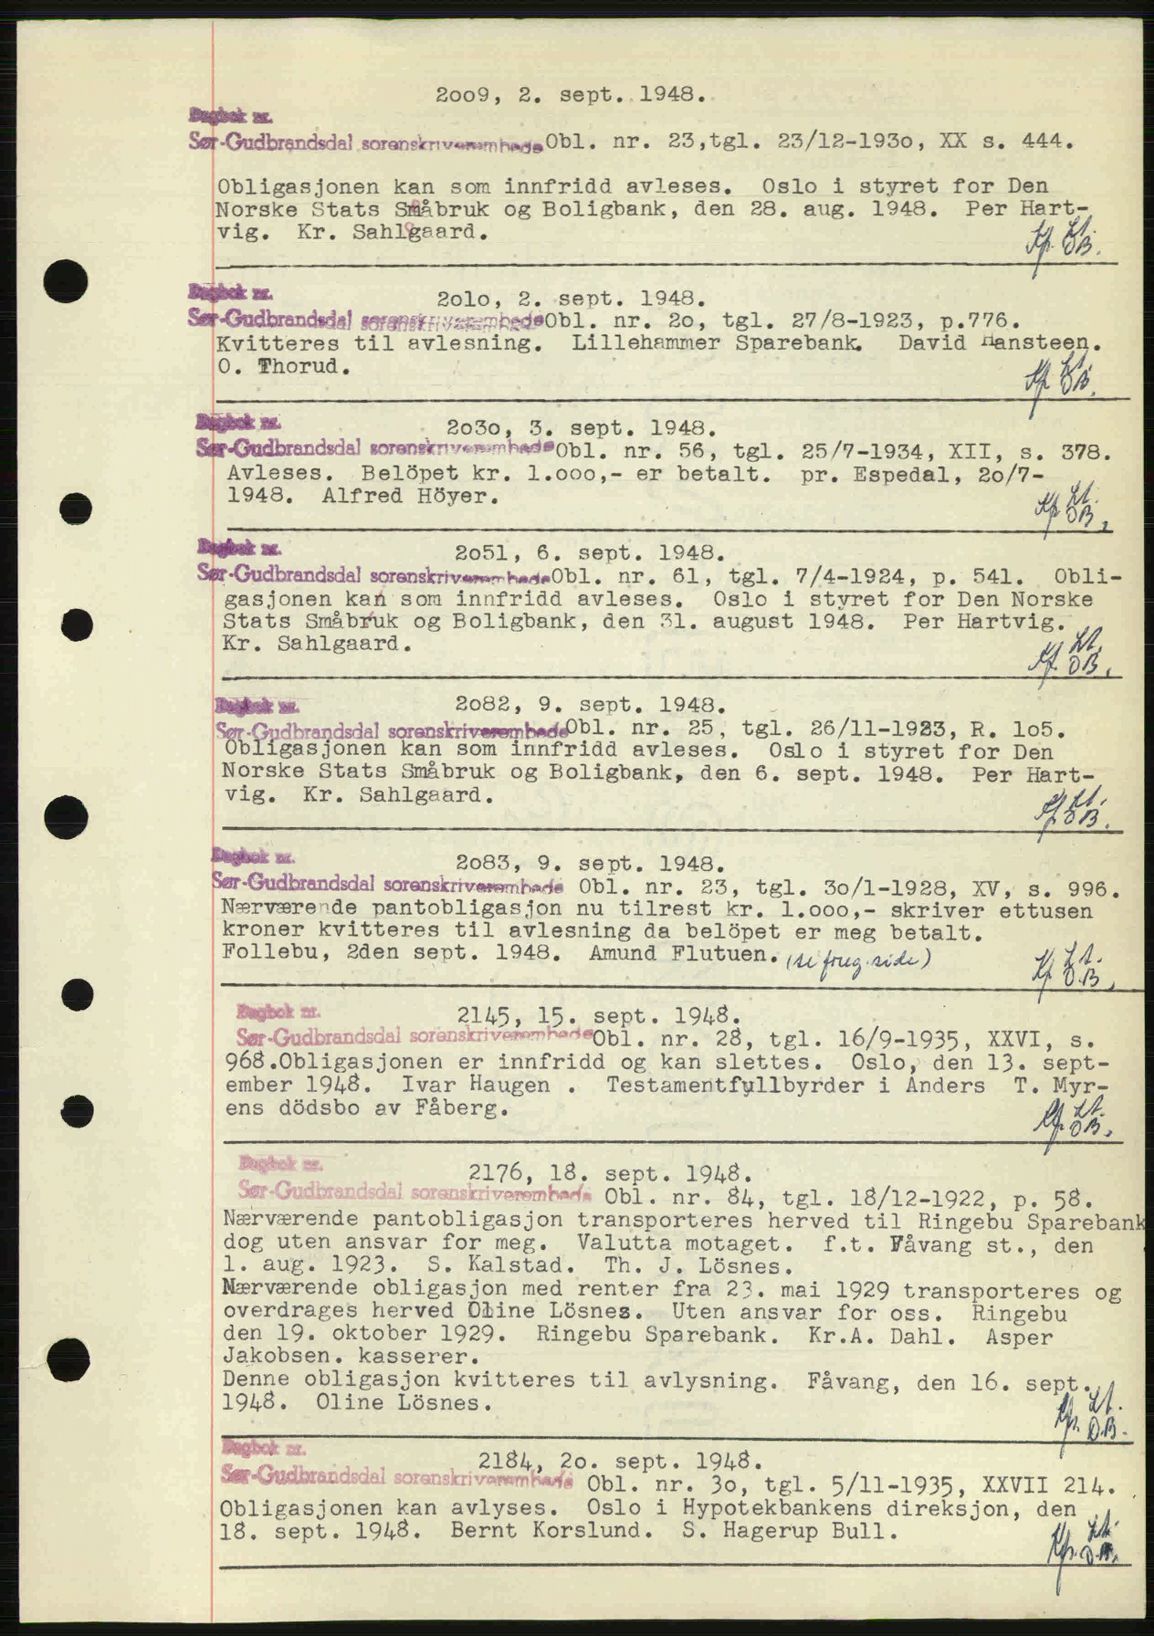 2oo9, 2. sept. 1948.
Dagbok nr.
Sør-Gudbrandsdal sorenskriverembede Obl. nr. 23,tgl. 23/12-193o, XX s. 444.
Obligasjonen kan som innfridd avleses. Oslo i styret for Den
Norske Stats Småbruk og Boligbank, den 28. aug. 1948. Per Hart-
vig. Kr. Sahlgaard.
Kp. Lt.
OB.
Dagbok nr.
2olo, 2. sept. 1948.
Sør-Gudbrandsdal sorenskriverembede Obl. nr. 2o, tgl. 27/8-1923, p.776.
Kvitteres til avlesning. Lillehammer Sparebank. David Hansteen.
O. Thorud.
Kp Lt.
OB.
Dagbok nr.
2o3o, 3. sept. 1948.
Sør-Gudbrandsdal sorenskriverembede Obl. nr. 56, tgl. 25/7-1934, XII, s. 378.
Avleses. Belöpet kr. 1.ooo,- er betalt. pr. Espedal, 2o/7-
1948. Alfred Höyer.
Kp Lt.
OB.
Dagbok nr.
2o51, 6. sept. 1948.
Sør-Gudbrandsdal sorenskriverembede Obl. nr. 61, tgl. 7/4-1924, p. 541. Obli-
gasjonen kan som innfridd avleses. Oslo i styret for Den Norske
Stats Småbruk og Boligbank, den 31. august 1948. Per Hartvig.
Kr. Sahlgaard.
Kp. Lt.
OB.
Dagbok nr.
2o82, 9. sept. 1948.
Sør-Gudbrandsdal sorenskriverembede Obl. nr. 25, tgl. 26/11-1923, R. 1o5.
Obligasjonen kan som innfridd avleses. Oslo i styret for Den
Norske Stats Småbruk og Boligbank, den 6. sept. 1948. Per Hart-
vig. Kr. Sahlgaard.
Kp Lt.
OB.
Dagbok nr.
2o83, 9. sept. 1948.
Sør-Gudbrandsdal sorenskriverembede Obl. nr. 23, tgl. 3o/1-1928, XV, s. 996.
Nærværende pantobligasjon nu tilrest kr. 1.ooo,- skriver ettusen
kroner kvitteres til avlesning da belöpet er meg betalt.
Follebu, 2den sept. 1948. Amund Flutuen. (se foreg. side)
Kp Lt.
O.B.
Dagbok nr.
2145, 15. sept. 1948.
Sør-Gudbrandsdal sorenskriverembede Obl. nr. 28, tgl. 16/9-1935, XXVI, s.
968.Obligasjonen er innfridd og kan slettes. Oslo, den 13. sept-
ember 1948. Ivar Haugen . Testamentfyllbyrder i Anders T. Myr-
ens dödsbo av Fåberg.
Kp. Lt.
OB.
Dagbok nr.
2176, 18. sept. 1948.
Sør-Gudbrandsdal sorenskriverembede Obl. nr. 84, tgl. 18/12-1922, p. 58.
Nærværende pantobligasjon transporteres herved til Ringebu Sparebank
dog uten ansvar for meg. Valutta motaget. f.t. Fåvang st., den
1. aug. 1923. S. Kalstad. Th. J. Lösnes.
Nærværende obligasjon med renter fra 23. mai 1929 transporteres og
overdrages herved Oline Lösnes. Uten ansvar for oss. Ringebu
den 19. oktober 1929. Ringebu Sparebank. Kr.A. Dahl. Asper
Jakobsen. kasserer.
Denne obligasjon kvitteres til avlysning. Fåvang, den 16. sept.
1948. Oline Lösnes.
Kp. Lt.
O.B.
Dagbok nr.
2184, 2o. sept. 1948.
Sør-Gudbrandsdal sorenskriverembede Obl. nr. 3o, tgl. 5/11-1935, XXVII 214.
Obligasjonen kan avlyses. Oslo i Hypotekbankens direksjon, den
18. sept. 1948. Bernt Korslund. S. Hagerup Bull.
Kp. Lt.
O.B.